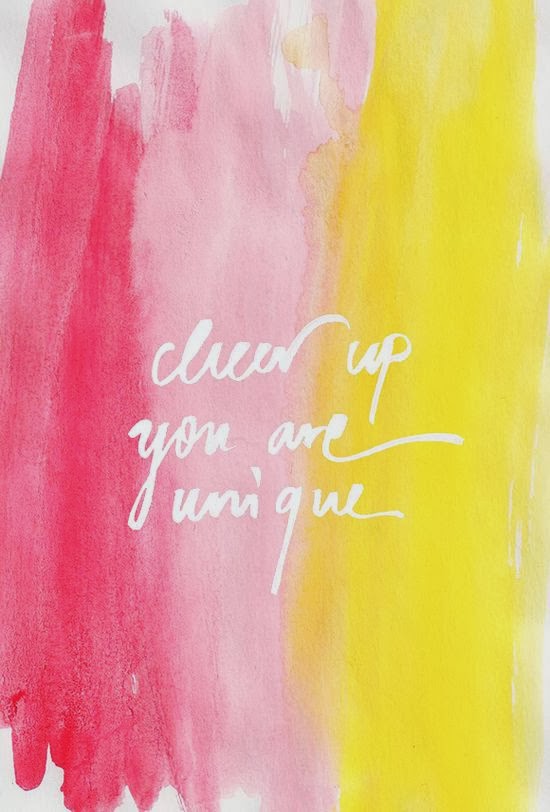 cheer up
you are
unique